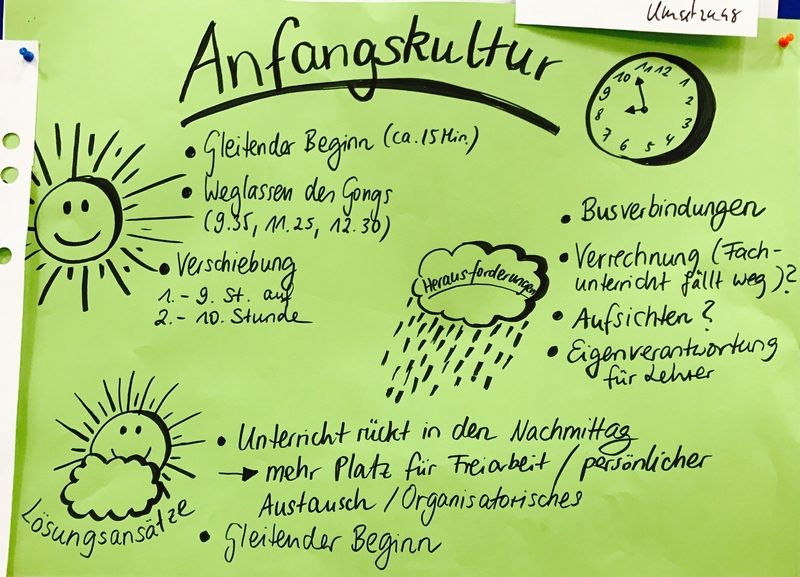 Umsetzung
Anfangskultur
10 11 12
9 1
8 2
7 3
6 5 4
• Gleitender Beginn (ca. 15 Min.)
• Weglassen des Gongs
(9.35, 11.25, 12.30)
• Verschiebung
1. - 9. St. auf
2. - 10. Stunde
Herausforderungen
• Busverbindungen
• Verrechnung (Fach-
unterricht fällt weg)?
• Aufsichten?
• Eigenverantwortung
für Lehrer
Lösungsansätze
• Unterricht rückt in den Nachmittag
→ mehr Platz für Freiarbeit / persönlicher
Austausch / Organisatorisches
• Gleitender Beginn